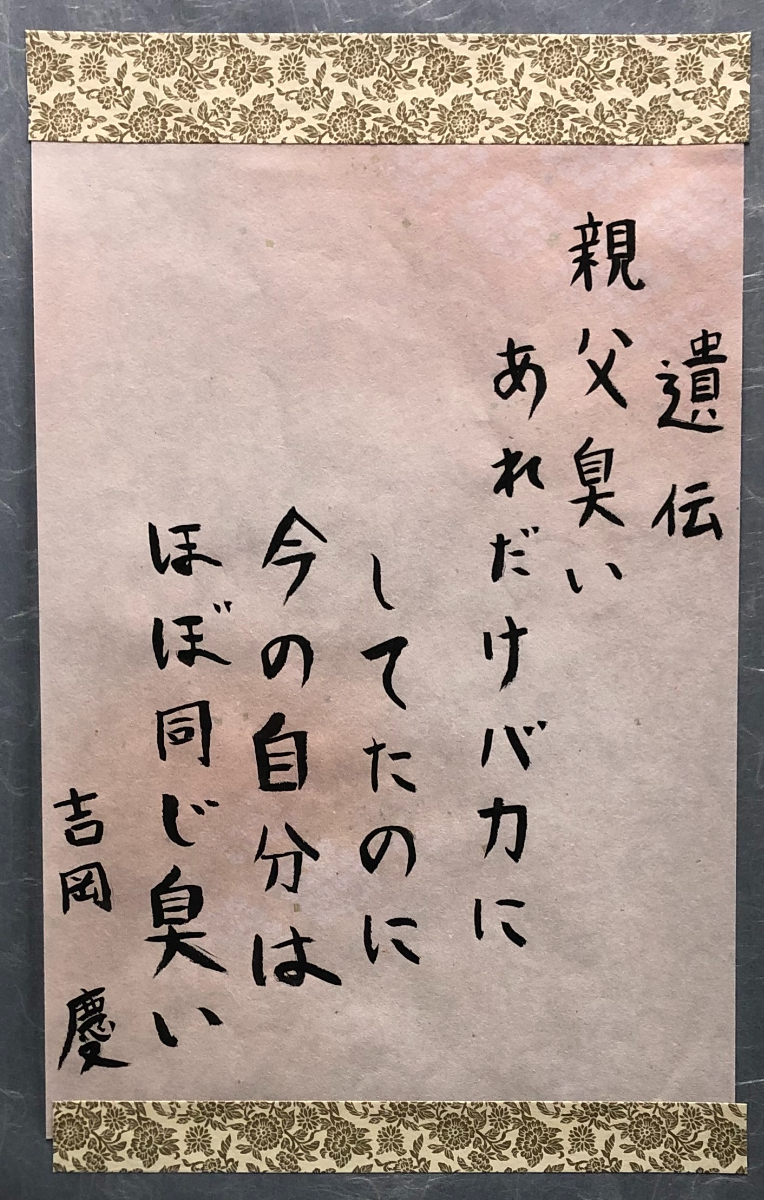 遺伝
親父臭い
あれだけバカに
してたのに
今の自分は
ほぼ同じ臭い
吉岡 慶